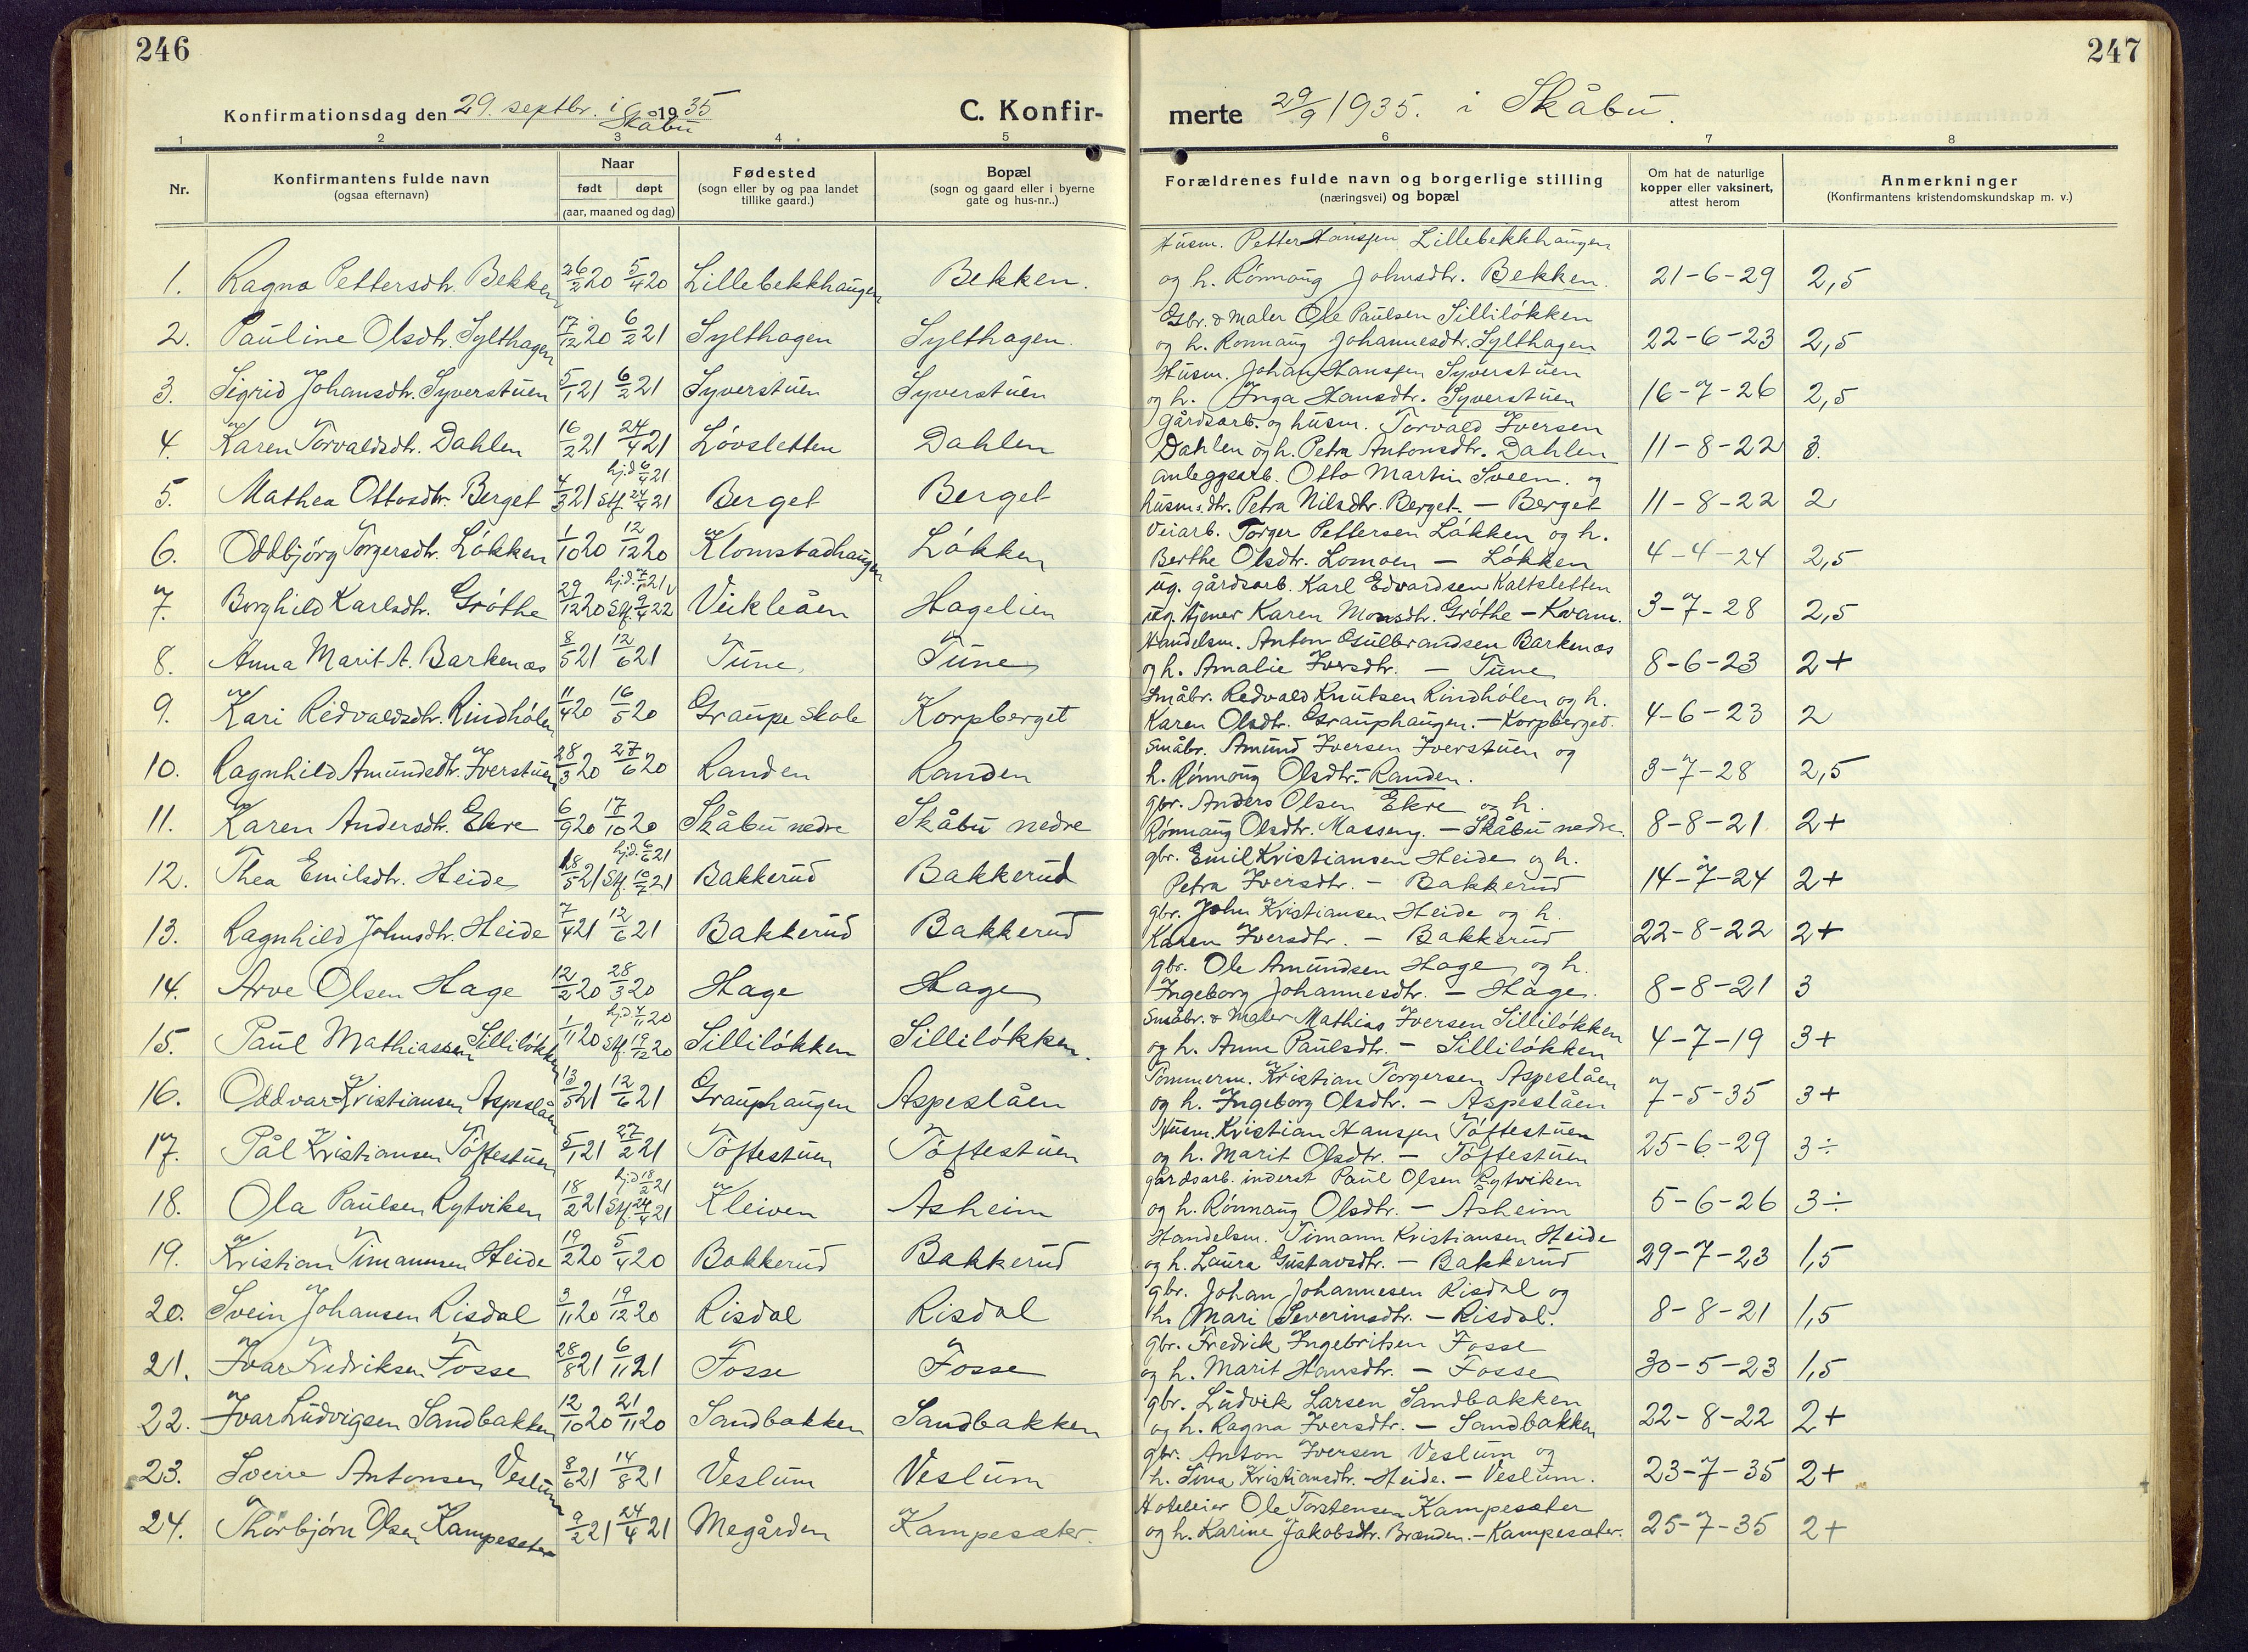 246
247
Konfirmationsdag den 29. septbr. i Skåbu 1935
C. Konfir-
merte 29/9 1935. i Skåbu.
1 2 3 4 5 6 7 8
Nr.
Konfirmantens fulde navn
(ogsaa efternavn)
Naar
født døpt
(aar, maaned og dag)
Fødested
(sogn eller by og paa landet
tillike gaard.)
Bopæl
(sogn og gaard eller i byerne
gate og hus-nr..)
Forældrenes fulde navn og borgerlige stilling
(næringsvei) og bopæl
Om hat de naturlige
kopper eller vaksinert,
attest herom
Anmerkninger
(Konfirmantens kristendomskundskap m. v.)
Husm. Petter Hansen Lillebekkhaugen
1. Ragna Pettersdtr. Bekken 26/2 20 5/4 20 Lillebekkhaugen Bekken. og h. Rønnaug Johnsdtr. Bekken. 21-6-29 2,5
Gbr. & maler Ole Paulsen Silliløkken
2. Pauline Olsdtr. Sylthagen 17/12 20 6/2 21 Sylthagen Sylthagen. og h. Rønnaug Johannesdtr. Sylthagen 22-6-23 2,5
Husm. Johan Hansen Syverstuen
3. Sigrid Johansdtr. Syverstuen 5/1 21 6/2 21 Syverstuen Syverstuen og h. Inga Hansdtr. Syverstuen 16-7-26 2,5
Gårdsarb. og husm. Torvald Iversen
4. Karen Torvaldsdtr. Dahlen 16/2 21 24/4 21 Løvsletten Dahlen Dahlen og h. Petra Antonsdtr. Dahlen 11-8-22 3.
anleggsarb. Otto Martin Sveen. og
5. Mathea Ottosdtr. Berget 4/3 21 hj.d. 6/4 21 stf. 24/4 21 Berget Berget husm.dtr. Petra Nilsdtr. Berget. – Berget 11-8-22 2
Veiarb. Torger Pettersen Løkken og h.
6. Oddbjörg Torgersdtr. Løkken 1/10 20 12/12 20 Klomstadhaugen Løkken Berthe Olsdtr. Lomoen – Løkken 4-4-24 2,5
ug. gårdsarb. Karl Edvardsen Kaltsletten
7. Borghild Karlsdtr. Grøthe 29/12 20 stf. 9/4 22 Veikleåen Hagelien ug. tjener Karen Monsdtr. Grøthe – Kvam. 3-7-28 2,5
Handelsm. Anton Gulbrandsen Barkenæs
8. Anna Marit A. Barkenæs 8/5 21 12/6 21 Tune Tune og h. Amalie Iversdtr. – Tune 8-6-23 2+
Småbr. Redvald Knutsen Rindhølen og h.
9. Kari Redvaldsdtr. Rindhølen 11/4 20 16/5 20 Graupe skole Korpberget Karen Olsdtr. Grauphaugen. – Korpberget. 4-6-23 2
Småbr. Amund Iversen Iverstuen og
10. Ragnhild Amundsdtr. Iverstuen 28/3 20 27/6 20 Randen Randen h. Rønnaug Olsdtr. – Randen. 3-7-28 2,5
gbr. Anders Olsen Ekre og h.
11. Karen Andersdtr. Ekre 6/9 20 17/10 20 Skåbu nedre Skåbu nedre Rønnaug Olsdtr. Masseng. – Skåbu nedre. 8-8-21 2+
gbr. Emil Kristiansen Heide og h.
12. Thea Emilsdtr. Heide 18/5 21 hj.d. 6/6 21 stf. 10/7 21 Bakkerud Bakkerud Petra Iversdtr. – Bakkerud 14-7-24 2+
gbr. John Kristiansen Heide og h.
13. Ragnhild Johnsdtr. Heide 7/4 21 12/6 21 Bakkerud Bakkerud Karen Iversdtr. – Bakkerud 22-8-22 2+
gbr. Ole Amundsen Hage og h.
14. Arve Olsen Hage 12/2 20 28/3 20 Hage Hage Ingeborg Johannesdtr. – Hage. 8-8-21 3
Småbr. & maler Mathias Iversen Silliløkken
15. Paul Mathiassen Silliløkken 1/11 20 hj.d. 7/11 20 stf. 19/12 20 Silliløkken Silliløkken. og h. Anne Paulsdtr. – Silliløkken 4-7-19 3+
Tømmerm. Kristian Torgersen Aspeslåen
16. Oddvar Kristiansen Aspeslåen 13/5 21 12/6 21 Grauphaugen Aspeslåen og h. Ingeborg Olsdtr. – Aspeslåen 7-5-35 3+
Husm. Kristian Hansen Tøftestuen
17. Pål Kristiansen Tøftestuen 5/1 21 27/2 21 Tøftestuen Tøftestuen og h. Marit Olsdtr. – Tøftestuen 25-6-29 3÷
gårdsarb. inderst Paul Olsen Rytviken
18. Ola Paulsen Rytviken 18/2 21 hj.d. 18/2 21 stf. 24/4 21 Kleiven Åsheim og h. Rønnaug Olsdtr. – Åsheim 5-6-26 3÷
Handelsm. Timann Kristiansen Heide
19. Kristian Timannsen Heide 19/2 20 5/4 20 Bakkerud Bakkerud og h. Laura Gustavsdtr. – Bakkerud 29-7-23 1,5
gbr. Johan Johannesen Risdal og
20. Svein Johansen Risdal 3/11 20 19/12 20 Risdal Risdal h. Mari Severinsdtr. – Risdal. 8-8-21 1,5
gbr. Fredrik Ingebritsen Fosse
21. Ivar Fredriksen Fosse 28/8 21 6/11 21 Fosse Fosse og h. Marit Hansdtr. – Fosse 30-5-23 1,5
gbr. Ludvik Larsen Sandbakken
22. Ivar Ludvigsen Sandbakken 12/10 20 21/11 20 Sandbakken Sandbakken og h. Ragna Iversdtr. – Sandbakken 22-8-22 2+
gbr. Anton Iversen Veslum og
23. Sverre Antonsen Veslum 8/6 21 14/8 21 Veslum Veslum h. Sina Kristiansdtr. Heide. – Veslum. 23-7-35 2+
Hoteleier Ole Torstensen Kampesæter
24. Thorbjørn Olsen Kampesæter 9/2 21 24/4 21 Megården Kampesæter. og h. Karine Jakobsdtr. Brænden. – Kampesæter. 25-7-35 2+